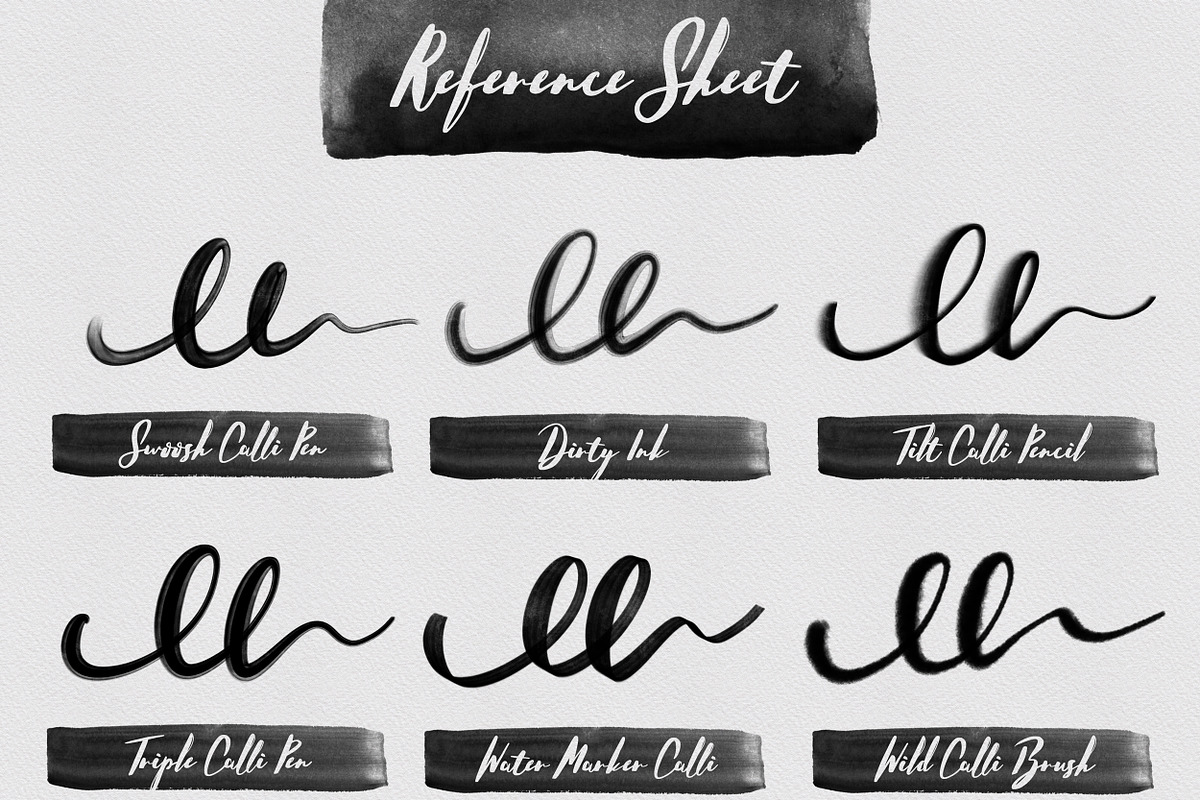 Reference Sheet
Swoosh Calli Pen
Dirty Ink
Tilt Calli Pencil
Triple Calli Pen
Water Marker Calli
Wild Calli Brush